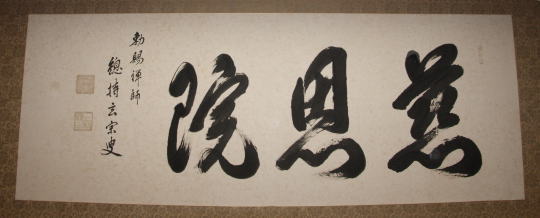 慈恩院
勅賜禅師
總持玄宗叟